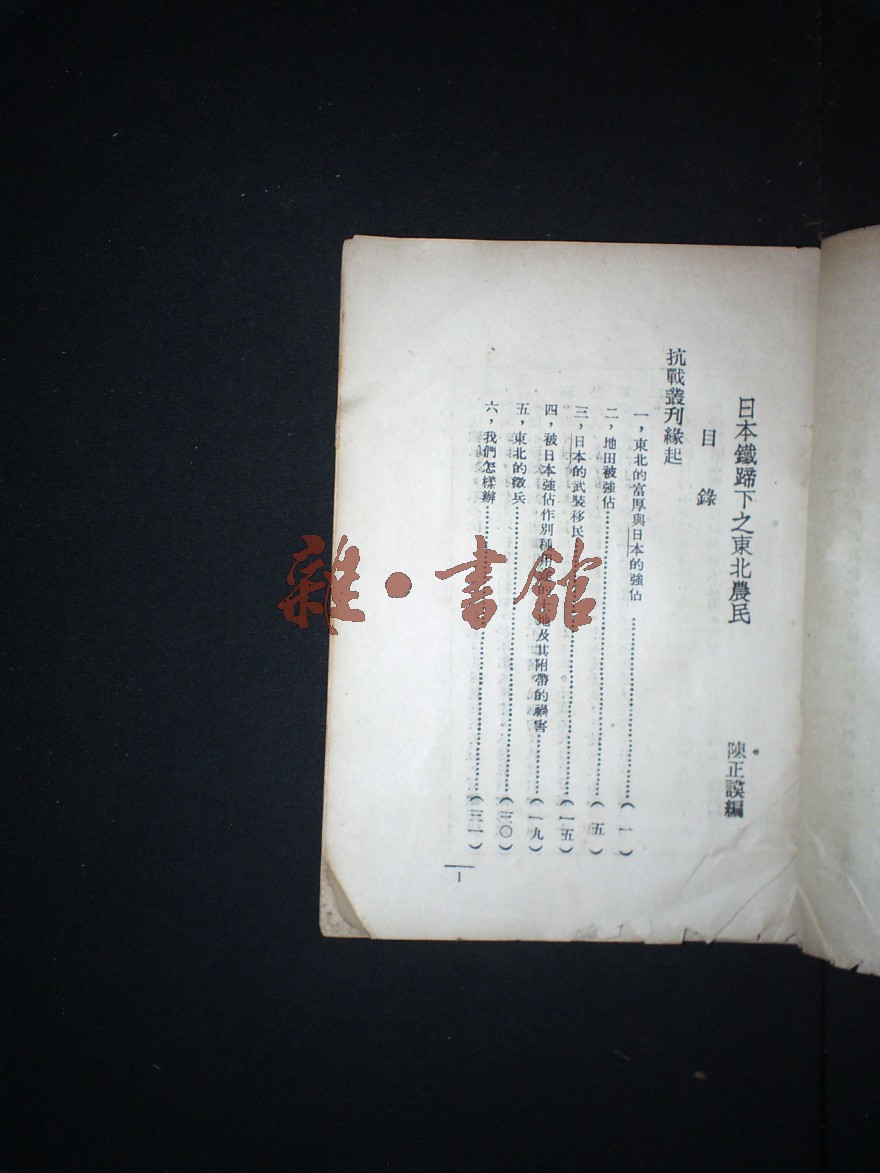 日本鐵蹄下之東北農民　陳正謨編
目錄
抗戰叢刊緣起
一，東北的富厚與日本的強佔……（一）
二，地田被強佔……（五）
三，日本的武裝移民……（一五）
四，被日本強佔作別種用途的土地及其附帶的禍害……（一九）
五，東北的徵兵……（三〇）
六，我們怎樣辦……（三一）
1
雜·書館